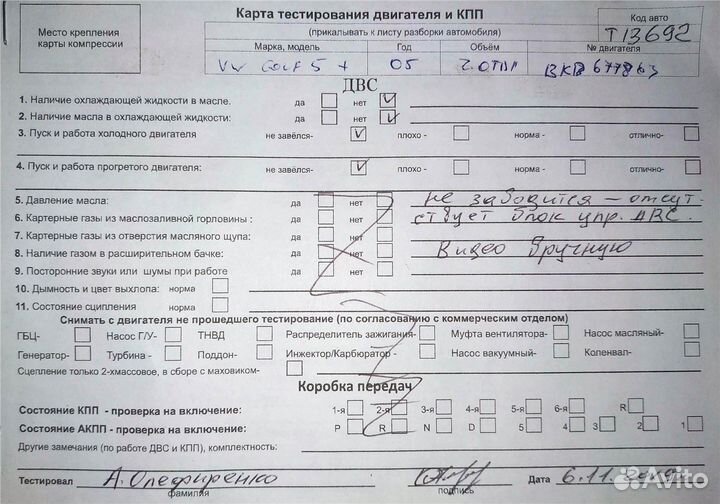 Место крепления карты компрессии
Карта тестирования двигателя и КПП
(прикалывать к листу разборки автомобиля)
Код авто
T13692
Марка, модель Год Объём № двигателя
VW GOLF 5 + 05 2.0TDI BKD 677863
ДВС
1. Наличие охлаждающей жидкости в масле. да нет
2. Наличие масла в охлаждающей жидкости: да нет
3. Пуск и работа холодного двигателя не завёлся- плохо - норма - отлично-
4. Пуск и работа прогретого двигателя: не завёлся- плохо - норма - отлично-
5. Давление масла: да нет не заводится – отсут-
6. Картерные газы из маслозаливной горловины : да нет ствует блок упр. ДВС.
7. Картерные газы из отверстия масляного щупа: да нет
8. Наличие газом в расширительном бачке: да нет Видео вручную
9. Посторонние звуки или шумы при работе да нет
10. Дымность и цвет выхлопа: норма
11. Состояние сцепления норма
Снимать с двигателя не прошедшего тестирование (по согласованию с коммерческим отделом)
ГБЦ- Насос Г/У- ТНВД Распределитель зажигания- Муфта вентилятора- Насос масляный-
Генератор- Турбина - Поддон- Инжектор/Карбюратор - Насос вакуумный- Коленвал-
Сцепление только 2-хмассовое, в сборе с маховиком-
Коробка передач
Состояние КПП - проверка на включение: 1-я 2-я 3-я 4-я 5-я 6-я R
Состояние АКПП - проверка на включение: P R N D 5 4 3 2 1
Другие замечания (по работе ДВС и КПП), комплектность:
Тестировал А. Олефиренко Дата 6.11.
фамилия подпись
Avito